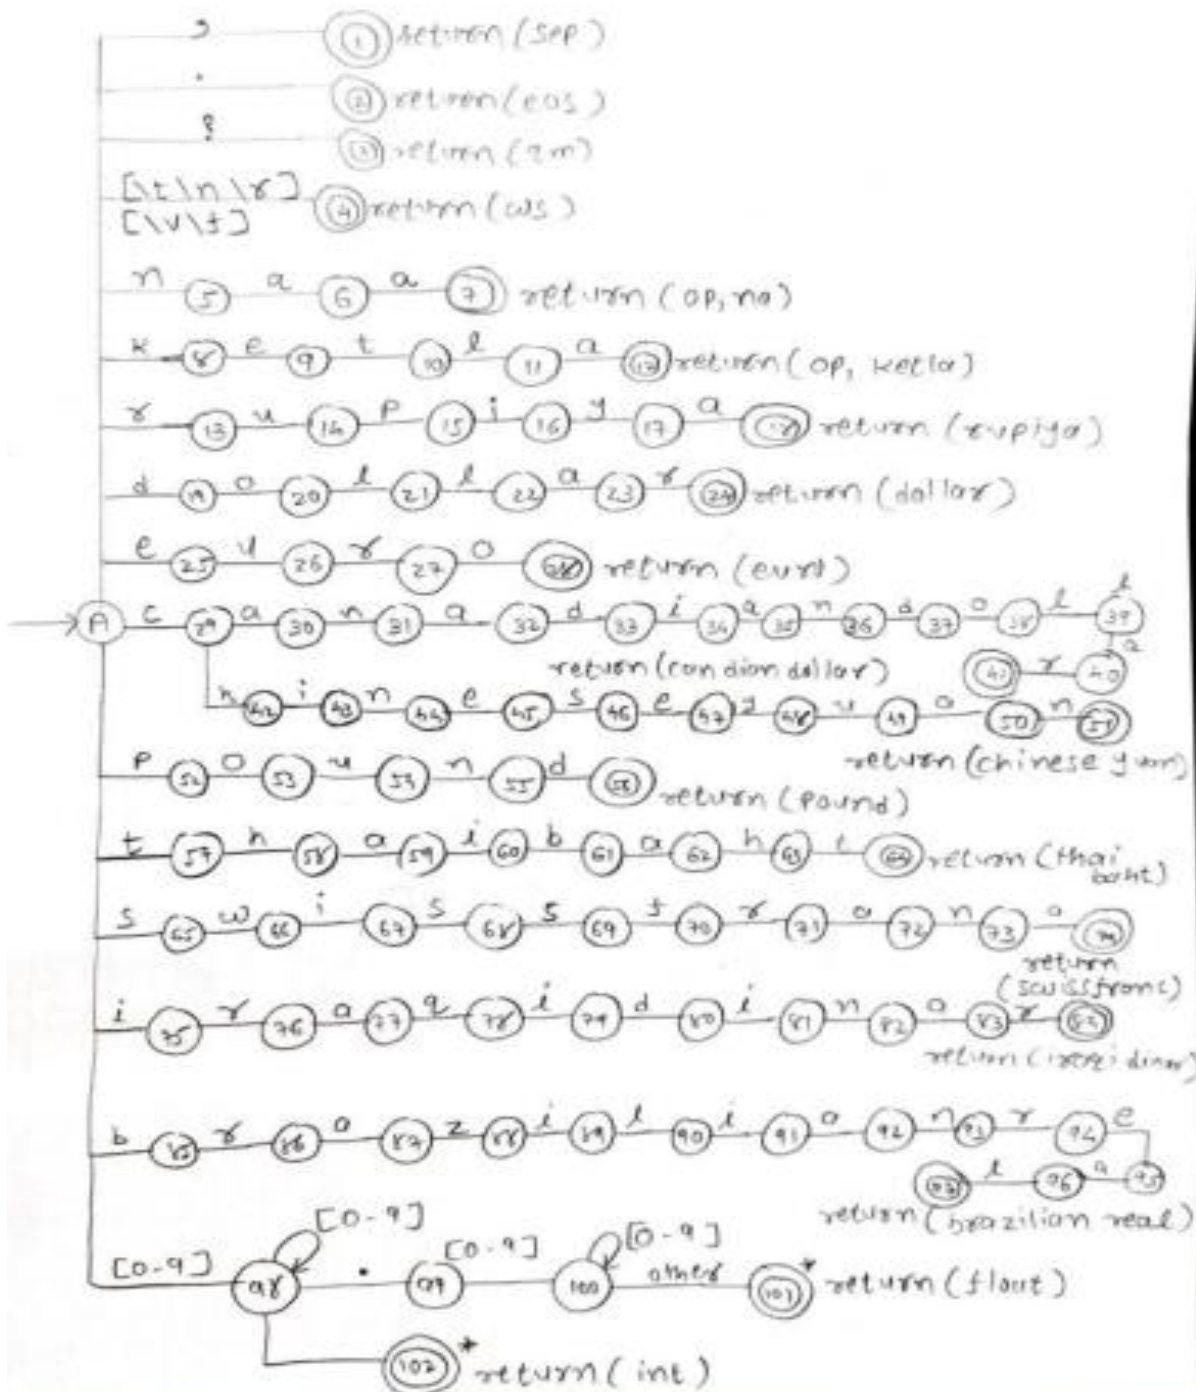 , 1 return (sep)
. 2 return (eos)
? 3 return (qm)
[\t\n\r]
[\v\f] 4 return (ws)
n 5 a 6 a 7 return (op, na)
k 8 e 9 t 10 l 11 a 12 return (op, ketla)
r 13 u 14 p 15 i 16 y 17 a 18 return (rupiya)
d 19 o 20 l 21 l 22 a 23 r 24 return (dollar)
e 25 u 26 r 27 o 28 return
A c 29 a 30 n 31 a 32 d 33 i 34 a 35 n 36 d 37 o 38 l 39 l
return (candian dollar) 41 r 40 a
h 42 i 43 n 44 e 45 s 46 e 47 y 48 u 49 a 50 n 51
return (chinese yuan)
p 52 o 53 u 54 n 55 d 56
return (pound)
t 57 h 58 a 59 i 60 b 61 a 62 h 63 t 64 return (thai
baht)
s 65 w 66 i 67 s 68 s 69 f 70 r 71 a 72 n 73 74
return
(swissfranc)
i 75 r 76 a 77 q 78 i 79 d 80 i 81 n 82 a 83 r
return
b 85 r 86 a 87 z 88 i 89 l 90 i 91 a 92 n 93 r 94 e
97 l 96 a 95
return (brazilian real)
[0-9] [0-9] [0-9]
[0-9] 98 . 99 100 other 101 * return (float)
102 * return (int)